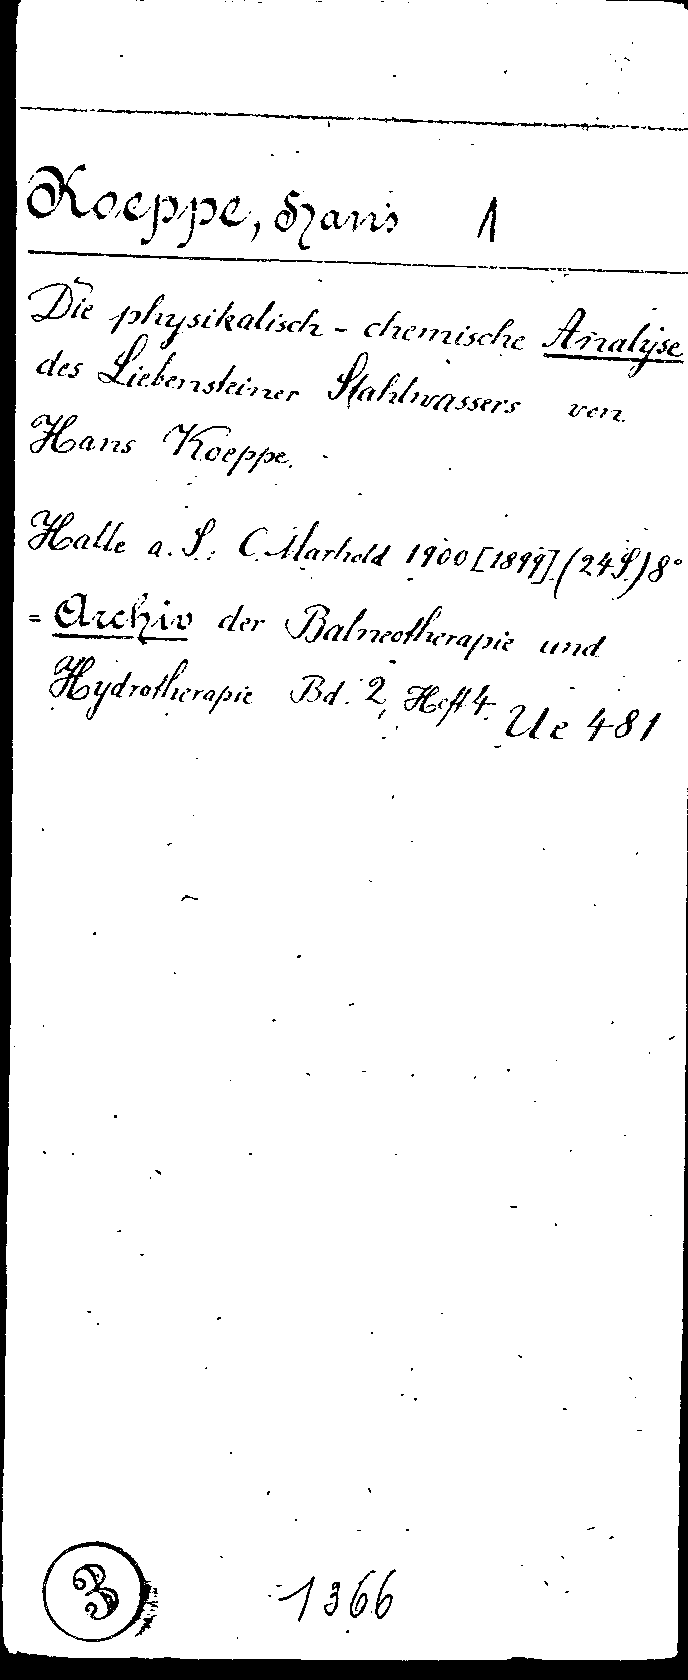 Koeppe, Hans 1
Die physikalisch-chemische Analyse
des Liebensteiner Stahlwassers von
Hans Koeppe.
Halle a. S.: C. Marhold 1900 [1899]. (24 S.) 8°
= Archiv der Balneotherapie und
Hydrotherapie Bd. 2, Heft 4.
Ue 481
3
1366